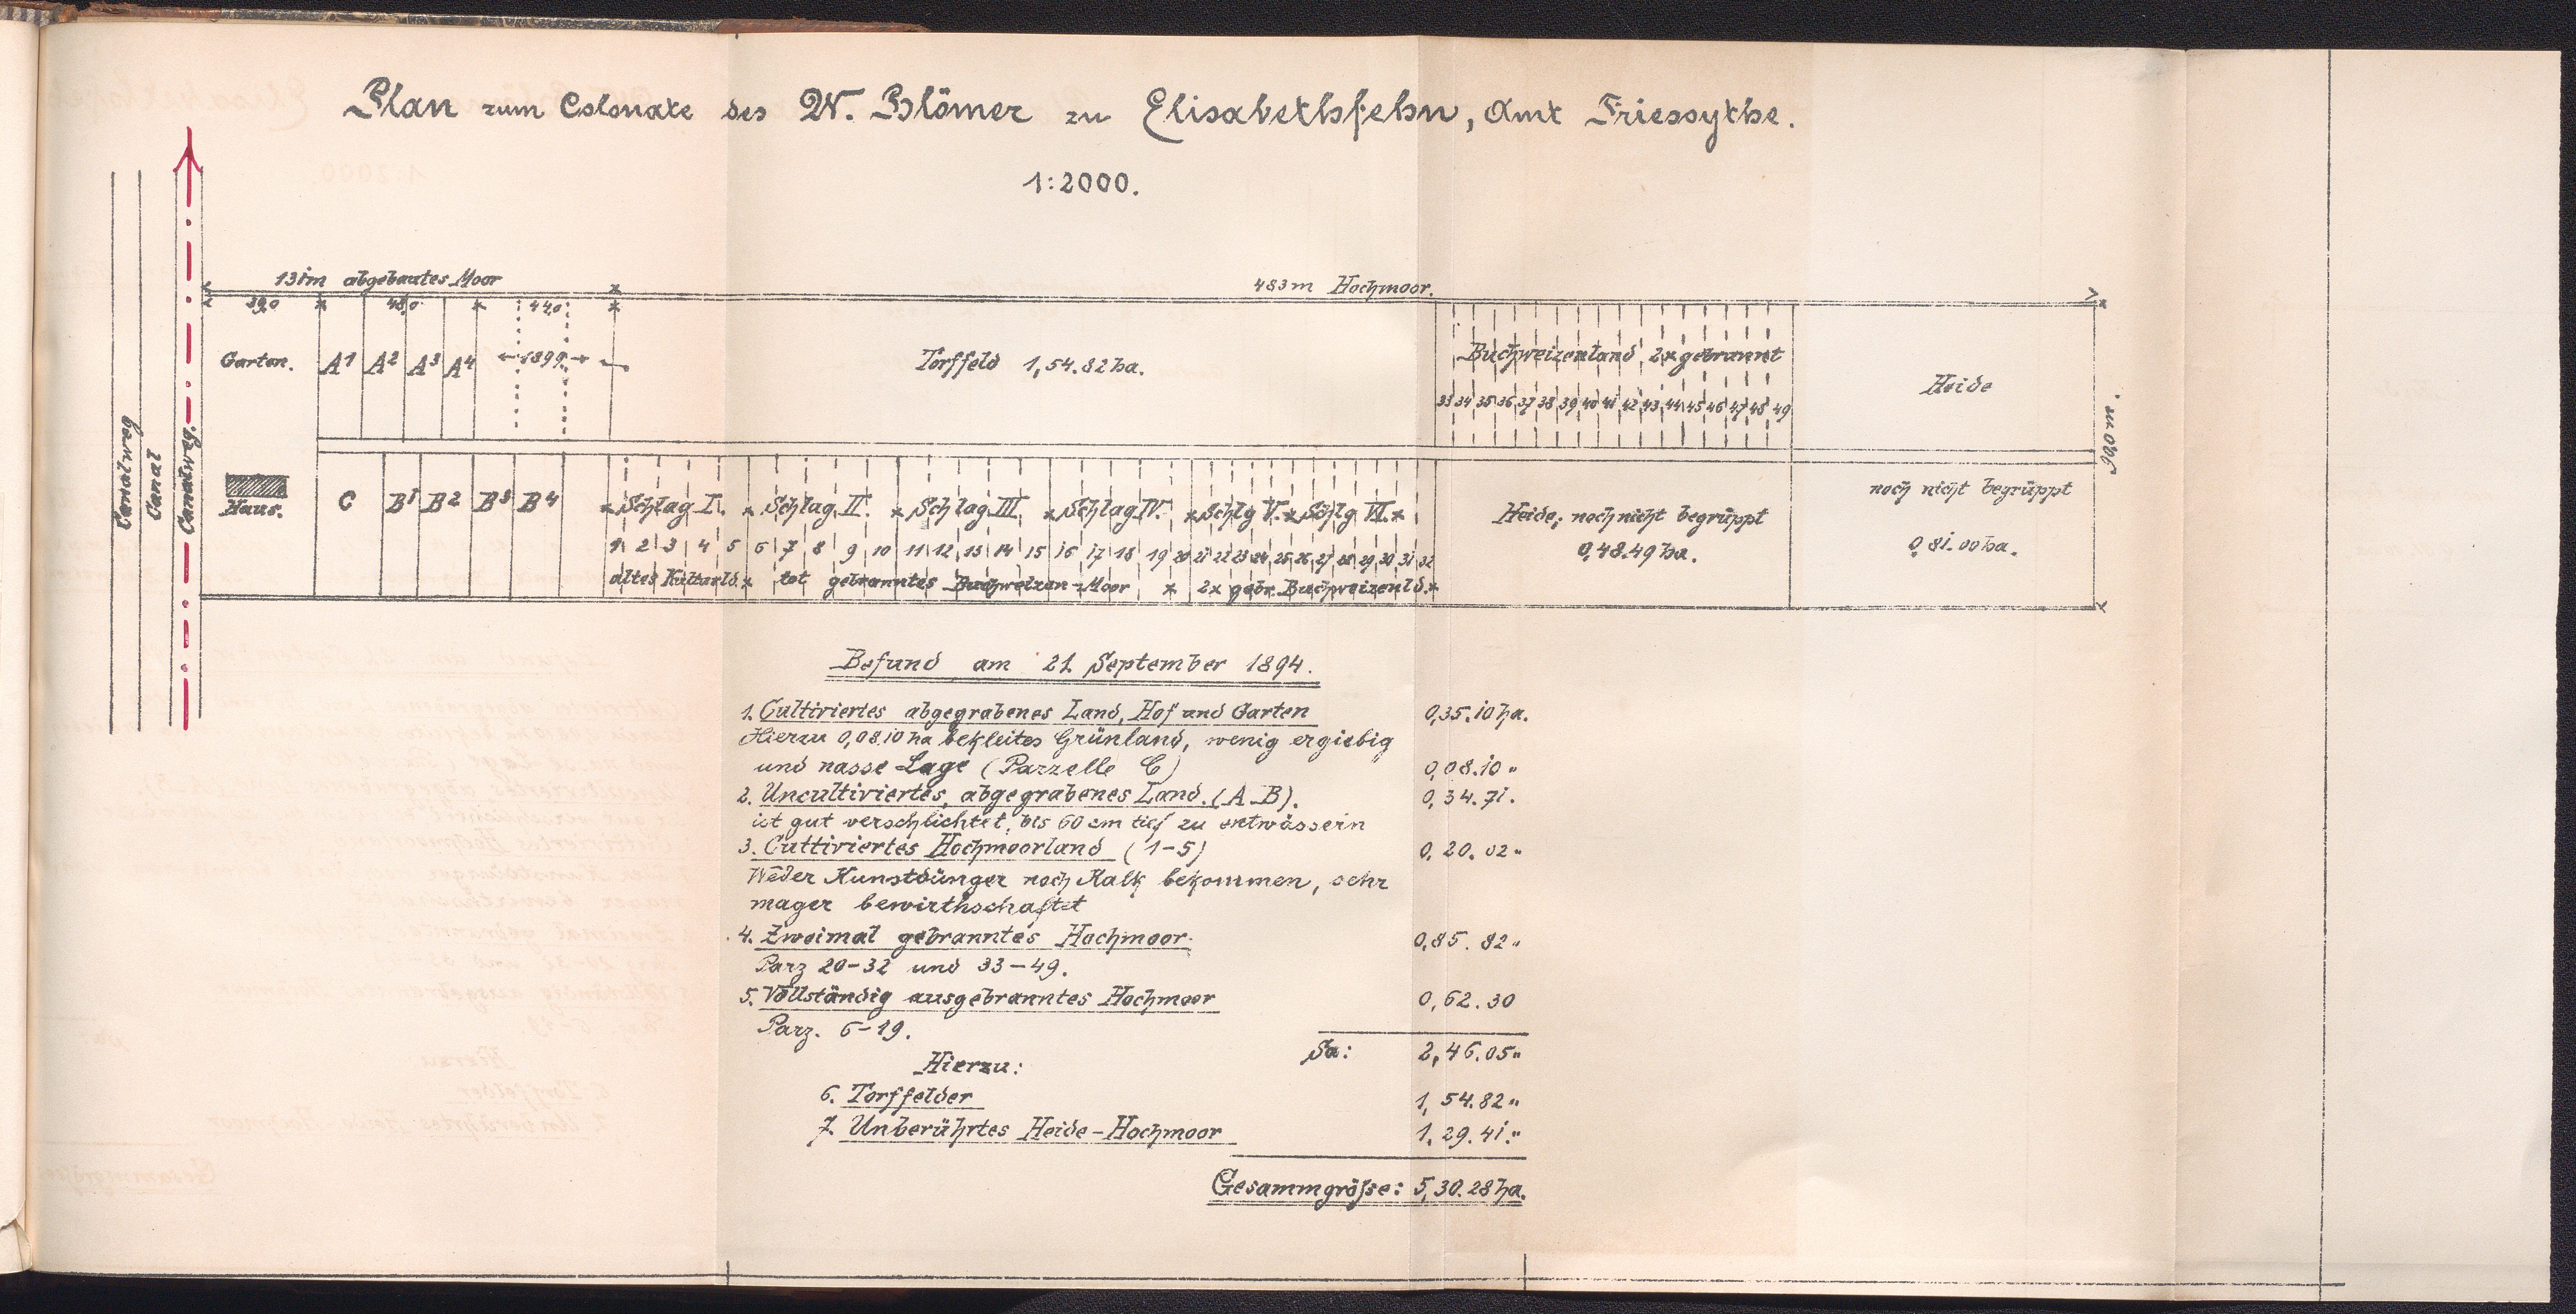 Plan zum Colonate des W. Blömer zu Elisabethsfehn, Amt Friesoythe.
1:2000.
131m abgebautes Moor
483m Hochmoor.
39,0 48,0 44,0
Garten. A1 A2 A3 A4 1899
Torffeld 1,54.82 ha.
Buchweizenland, 2x gebrannt
33 34 35 36 37 38 39 40 41 42 43 44 45 46 47 48 49
Heide
90,0 m.
Canalweg
Canal
Canalweg.
Haus.
C B1 B2 B3 B4
Schlag I. Schlag II. Schlag III Schlag IV. Schlg V. Schlg VI.
1 2 3 4 5 6 7 8 9 10 11 12 13 14 15 16 17 18 19 20 21 22 23 24 25 26 27 28 29 30 31 32
altes Kulturld. tot gebranntes Buchweizen-Moor 2x gebr. Buchweizenld.
Heide, noch nicht begrüppt
0,48.49 ha.
noch nicht begrüppt
0,81.00 ha.
Befund am 21. September 1894.
1. Cultiviertes abgegrabenes Land, Hof und Garten 0,35.10 ha.
Hierzu 0,08.10 ha bekleites Grünland, wenig ergiebig
und nasse Lage (Parzelle C) 0,08.10 "
2. Uncultiviertes, abgegrabenes Land. (A-B). 0,34.71.
ist gut verschlichtet, bis 60 cm tief zu entwässern
3. Cultiviertes Hochmoorland (1-5) 0,20.02 "
Weder Kunstdünger noch Kalk bekommen, sehr
mager bewirthschaftet
4. Zweimal gebranntes Hochmoor. 0,85.82 "
Parz 20-32 und 33-49.
5. Vollständig ausgebranntes Hochmoor 0,62.30
Parz. 6-19.
Sa: 2,46.05 "
Hierzu:
6. Torffelder 1,54.82 "
7. Unberührtes Heide-Hochmoor 1,29.41. "
Gesammgröße: 5,30.28 ha.